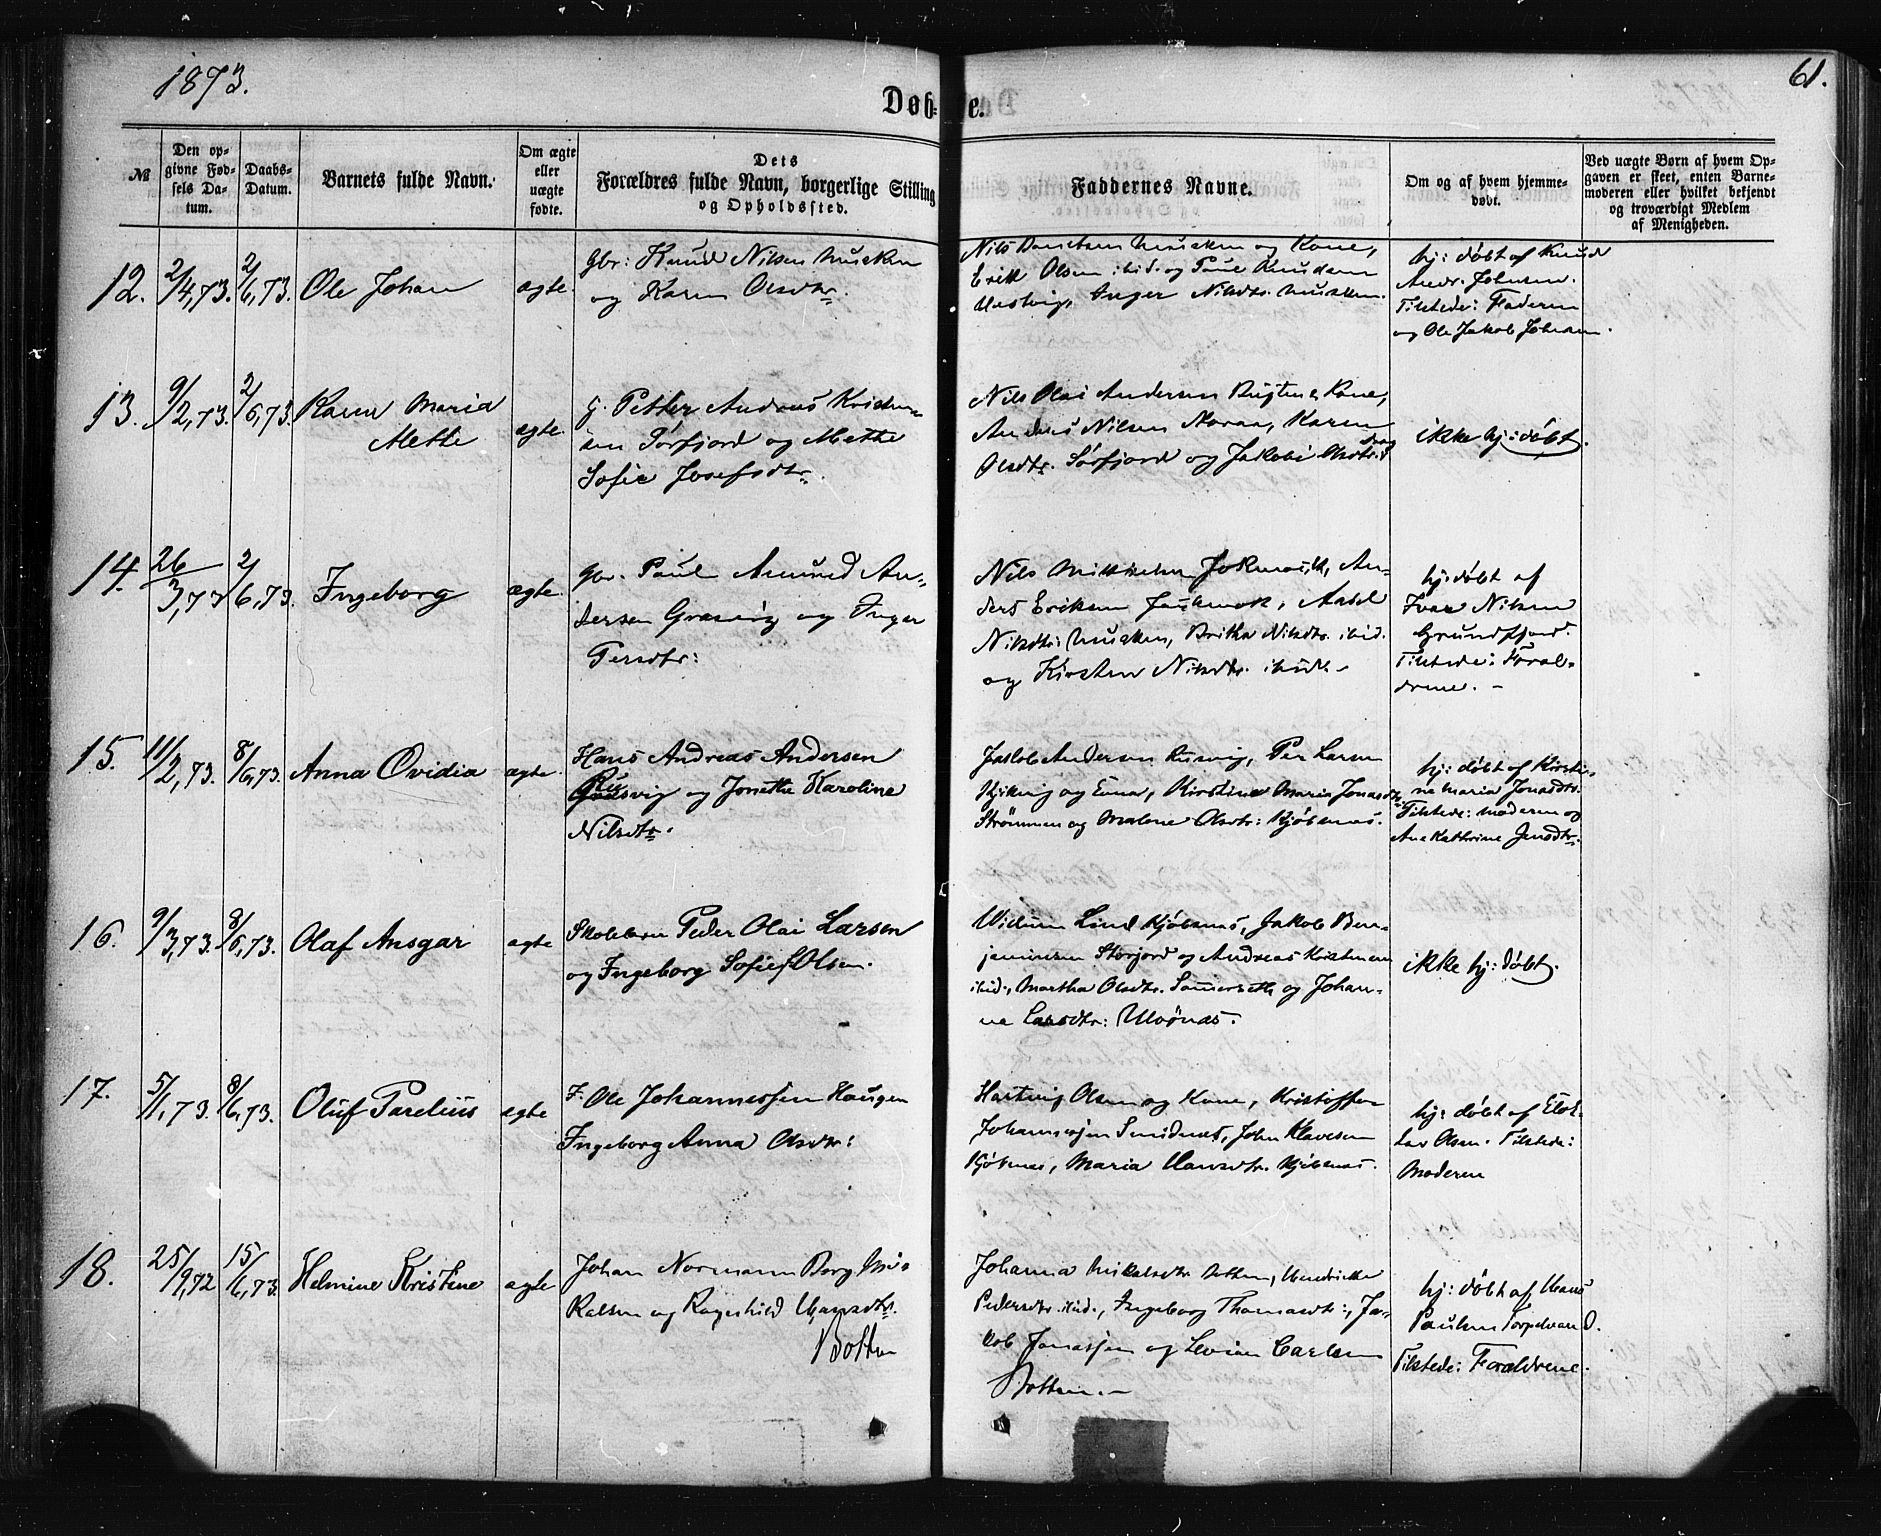 1873.
61.
Døb- te.
№
Den op-
givne Fød-
sels Da-
tum.
Daabs-
Datum.
Barnets fulde Navn.
Om ægte
eller
uægte
fødte.
Dets
Forældres fulde Navn, borgerlige Stilling
og Opholdssted.
Faddernes Navne.
Om og af hvem hjemme-
døbt.
Ved uægte Børn af hvem Op-
gaven er skeet, enten Barne-
moderen eller hvilket bekjendt
og troværdigt Medlem
af Menigheden.
12. 2/4,73. 2/6,73. Ole Johan ægte
Gbr: Knud Nilsen Musken
og Karen Olsdtr.
Nils Danielsen Musken og Kone,
Erik Olsen ibid. og Paul Knudsen
Hestvig, Inger Nilsdtr. Musken.
hj: døbt af Knud
Andr. Johnsen.
Tilstede: Faderen
og Ole Jakob Johnsen.
13. 9/2,73. 2/6,73. Karen Maria
Mette
ægte.
G. Petter Andreas Kristen-
sen Sørfjord og Mette
Sofie Josefsdtr.
Nils Olai Andersen og Kone,
Anders Nilsen Noraa, Karen
Olsdtr. Sørfjord og Jakobi Olsdtr. Drag
ikke hj: døbt.
14. 26/3,73 2/6,73. Ingeborg ægte
Gbr. Paul Amund An-
dersen Grasvig og Inger
Persdtr:
Nils Mikkelsen Jokmokk, An-
ders Eriksen Jokmok, Aadel
Nilsdtr: Musken, Britha Nilsdtr. ibid.
og Kirsten Nilsdtr. ibid. -
hj: døbt af
Ivar Nilsen
Grundfjord.
Tilstede: Foræl-
drene. -
15. 11/2,73. 8/6,73. Anna Ovidia ægte
Hans Andreas Andersen
Rusvig og Jonetta Karoline
Nilsdtr.
Jakob Andersen Rusvig, Per Larsen
og Kirstine Maria Jonasdtr
Strømmen og Malene Olsdtr: Kjøbsnæs.
hj: døbt af Kirsti-
ne Maria Jonasdtr:
Tilstede: Moderen og
Ane Kathrine Jensdtr:
16. 9/3,73. 8/6,73. Olaf Ansgar ægte
Skolelærer Peder Olai Larsen
og Ingeborg Sofie f. Olsen.
Lind Kjøbsnæs, Jakob Ben-
jaminsen Storjord og Andreas Kristensen
ibid., Martha Olsdtr. og Johan-
ne Larsdtr: Ulvönæs.
ikke hj: døbt.
17. 5/1,73. 8/6,73. Oluf Parelius ægte
F. Ole Johannessen Haugen
Ingeborg Anna Olsdtr:
Hartvig Olsen og Kone, Kristoffer
Johannesjen Smidnes, John Klavesen
Kjöbsnæs, Maria Hansdtr. Kjöbsnæs.
hj: døbt af Elok-
Lars Olsen. Tilstede:
Moderen
18. 25/9,72 15/6,73. Helmine Kristine ægte
Johan Normann Berg Mi-
kalsen og Ragnhild Hansdtr.
Botten
Johanna Mikalsdtr Botten, Hendrikke
Pedersdtr. ibid., Ingeborg Thomasdtr:, Ja-
kob Jonassen og Levian Carlsen
Botten. -
hj: døbt af Hans
Paulsen Torpelvand.
Tilstede: Forældrene.